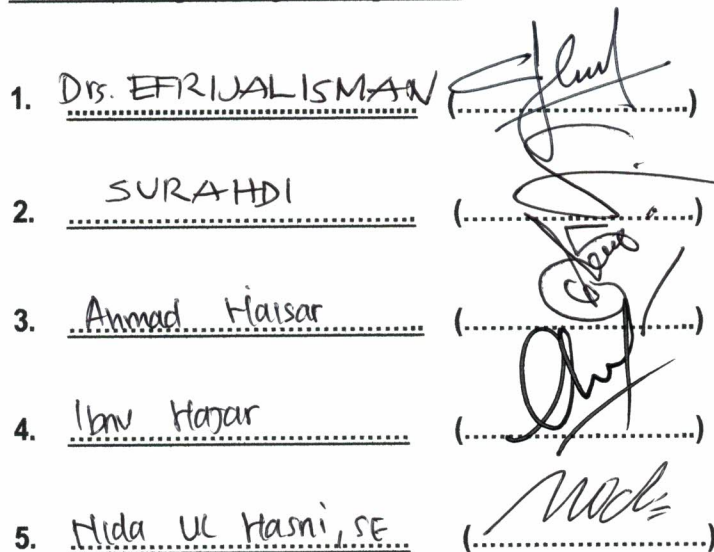 1. Drs. EFRIJALISMAN (....................)
2. SURAHDI (....................)
3. Ahmad Haisar (....................)
4. Ibnu Hajar (....................)
5. Nida Ul Hasni, SE (....................)